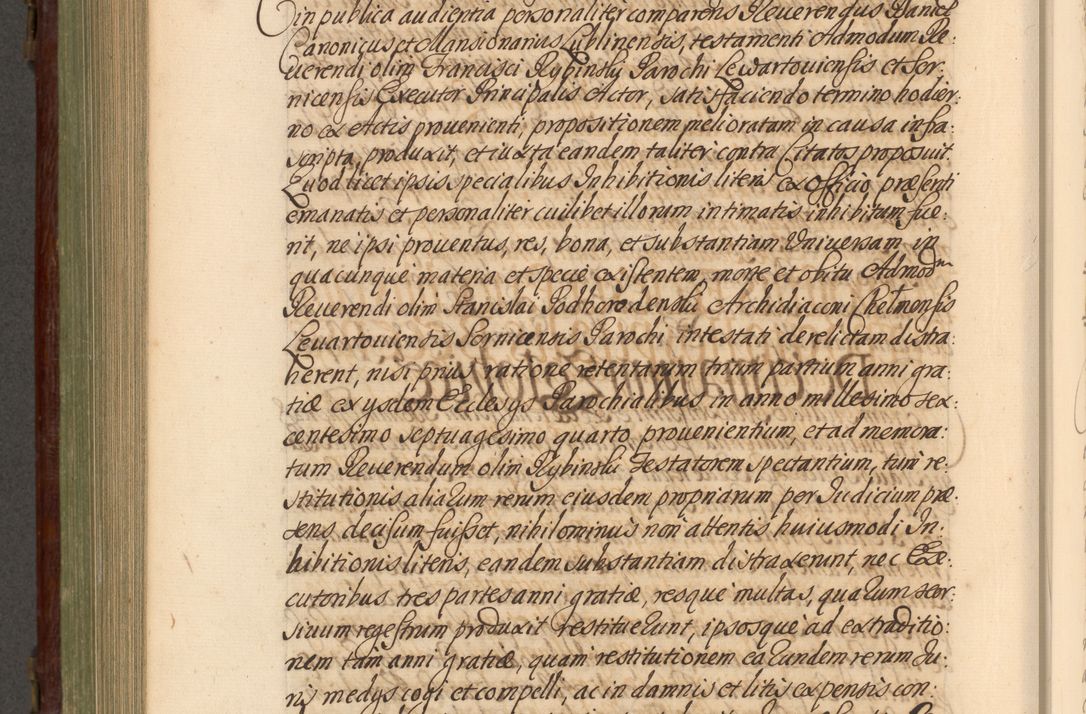 in publica audientia personaliter comparens Reuerendus Daniel
Canonicus et Mansionarius Lublinensis, testamenti Admodum Re:
uerendi olim Francisci Rybinski Parochi Lewartouiensis et Ser:
nicensis Executor Principalis Actor, satisfaciendo termino hodier:
no ex Actis prouenienti, propositionem melioratam in causa infra:
scripta, produxit, et iuxta eandem taliter contra Citatos proposuit.
Quod licet ipsis specialibus Inhibitionis literis ex Officio præsenti
emanatis et personaliter cuilibet illorum intimatis inhibitum fue:
rit, ne ipsi prouentus, res, bona, et substantiam Vniuersam in
quacunque materia et specie existentem, morte et obitu Admodm
Reuerendi olim Stanislai Podhorodenski Archidiaconi Chelmensis
Leuartouiensis Sernicensis Parochi intestati derelictam distra:
herent, nisi prius ratione retentarum trium partium anni gra:
tiæ ex ysdem Ecclesys Parochialibus in anno millesimo sex:
centesimo septuagesimo quarto prouenientium, et ad memora:
tum Reuerendum olim Rybinski Testatorem spectantium, tum re:
stitutionis aliarum rerum eiusdem propriarum per Iudicium præ:
sens decisum fuisset, nihilominus non attentis huiusmodi In:
hibitionis literis, eandem substantiam distraxerunt, nec Exe:
cutoribus tres partes anni gratiæ, resque multas, quarum seor:
siuum regestrum produxit restituerunt, ipsosque ad extraditio:
nem tam anni gratiæ, quam restitutionem earundem rerum Iu:
ris medys cogi et compelli, ac in damnis et litis expensis con: